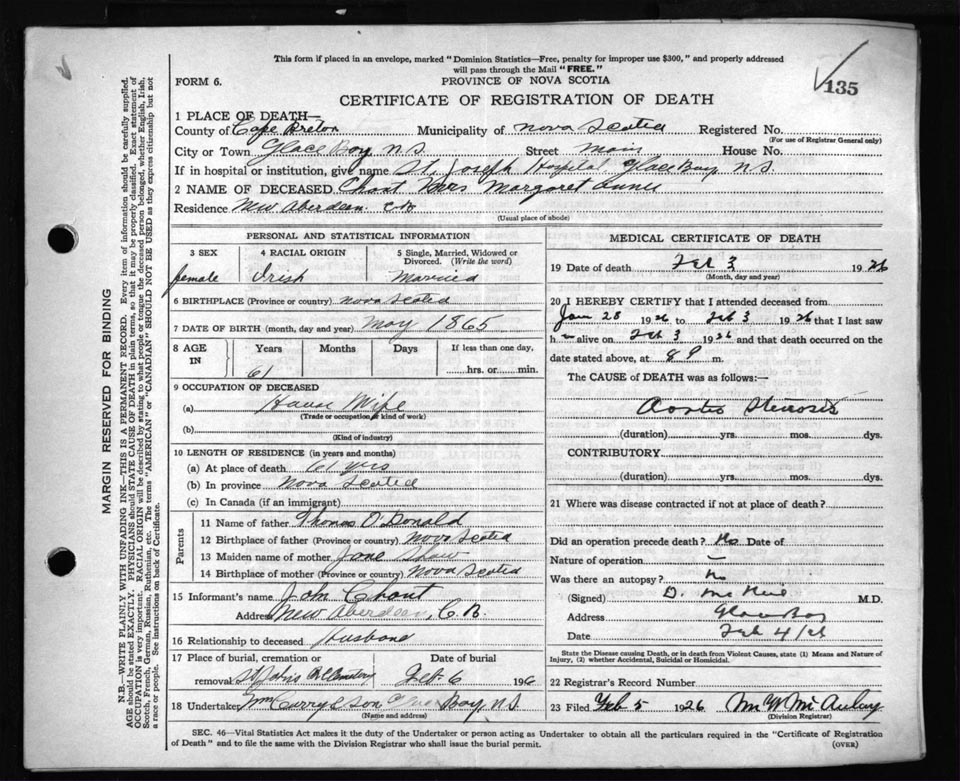 This form if placed in an envelope, marked "Dominion Statistics—Free, penalty for improper use $300," and properly addressed
will pass through the Mail "FREE."
135
FORM 6.
PROVINCE OF NOVA SCOTIA
CERTIFICATE OF REGISTRATION OF DEATH
1 PLACE OF DEATH—
County of Cape Breton Municipality of Nova Scotia Registered No.
(For use of Registrar General only)
City or Town Glace Bay N.S. Street Main House No.
If in hospital or institution, give name St. Joseph Hospital Glace Bay N.S.
2 NAME OF DECEASED Chant Mrs Margaret
Residence New Aberdeen C.B.
(Usual place of abode)
PERSONAL AND STATISTICAL INFORMATION
3 SEX 4 RACIAL ORIGIN 5 Single, Married, Widowed or Divorced. (Write the word)
female Irish Married
6 BIRTHPLACE (Province or country) Nova Scotia
7 DATE OF BIRTH (month, day and year) May 1865
8 AGE IN Years Months Days If less than one day,
61 hrs. or min.
9 OCCUPATION OF DECEASED
(a) House Wife
(Trade or occupation or kind of work)
(b)
(Kind of industry)
10 LENGTH OF RESIDENCE (in years and months)
(a) At place of death 61 yrs
(b) In province Nova Scotia
(c) In Canada (if an immigrant)
Parents
11 Name of father Thomas O'Donald
12 Birthplace of father (Province or country) Nova Scotia
13 Maiden name of mother Jane Shaw
14 Birthplace of mother (Province or country) Nova Scotia
15 Informant's name John Chant
Address New Aberdeen, C.B.
16 Relationship to deceased Husband
17 Place of burial, cremation or Date of burial
removal St John's Feb 6 196
18 Undertaker Wm Curry & Son Glace Bay, N.S.
(Name and address)
MEDICAL CERTIFICATE OF DEATH
19 Date of death Feb 3 1926
(Month, day and year)
20 I HEREBY CERTIFY that I attended deceased from
Jan 28 1926 to Feb 3 1926 that I last saw
h alive on Feb 3 1926 and that death occurred on the
date stated above, at 8 P m.
The CAUSE of DEATH was as follows:—
Aortic Stenosis
(duration) yrs. mos. dys.
CONTRIBUTORY
(duration) yrs. mos. dys.
21 Where was disease contracted if not at place of death?
Did an operation precede death? No Date of
Nature of operation —
Was there an autopsy? No
(Signed) D. M.D.
Address Glace Bay
Date Feb 4/26
State the Disease causing Death, or in death from Violent Causes, state (1) Means and Nature of
Injury, (2) whether Accidental, Suicidal or Homicidal.
22 Registrar's Record Number
23 Filed Feb 5 1926 M W McAulay
(Division Registrar)
SEC. 46—Vital Statistics Act makes it the duty of the Undertaker or person acting as Undertaker to obtain all the particulars required in the "Certificate of Registration
of Death" and to file the same with the Division Registrar who shall issue the burial permit. (OVER)
MARGIN RESERVED FOR BINDING
N.B.—WRITE PLAINLY WITH UNFADING INK—THIS IS A PERMANENT RECORD. Every item of information should be carefully supplied.
AGE should be stated EXACTLY. PHYSICIANS should STATE CAUSE OF DEATH in plain terms, so that it may be properly classified. Exact statement of
OCCUPATION is very important. RACIAL ORIGIN will be described by stating to what people or tongue the deceased person belonged, whether English, Irish,
Scotch, French, German, Russian, Ruthenian, etc. The terms "AMERICAN" or "CANADIAN" SHOULD NOT BE USED as they express citizenship but not
a race or people. See instructions on back of Certificate.